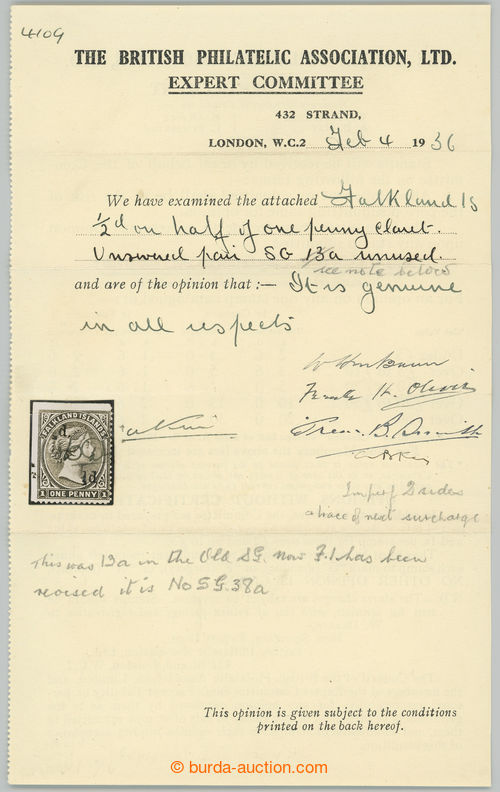 4109
THE BRITISH PHILATELIC ASSOCIATION, LTD.
EXPERT COMMITTEE
432 STRAND,
LONDON, W.C.2 Feb 4 1936
We have examined the attached Falkland Is
½d on half of one penny claret.
Unsevered pair SG 13a unused.
see note below
and are of the opinion that :— It is genuine
in all respects
Imperf 2 sides
a trace of next surcharge
FALKLAND ISLANDS
½d
½d
1 ONE PENNY 1
This was 13a in the Old SG. now F.I has been
revised it is No SG.38a
This opinion is given subject to the conditions
printed on the back hereof.
© burda-auction.com